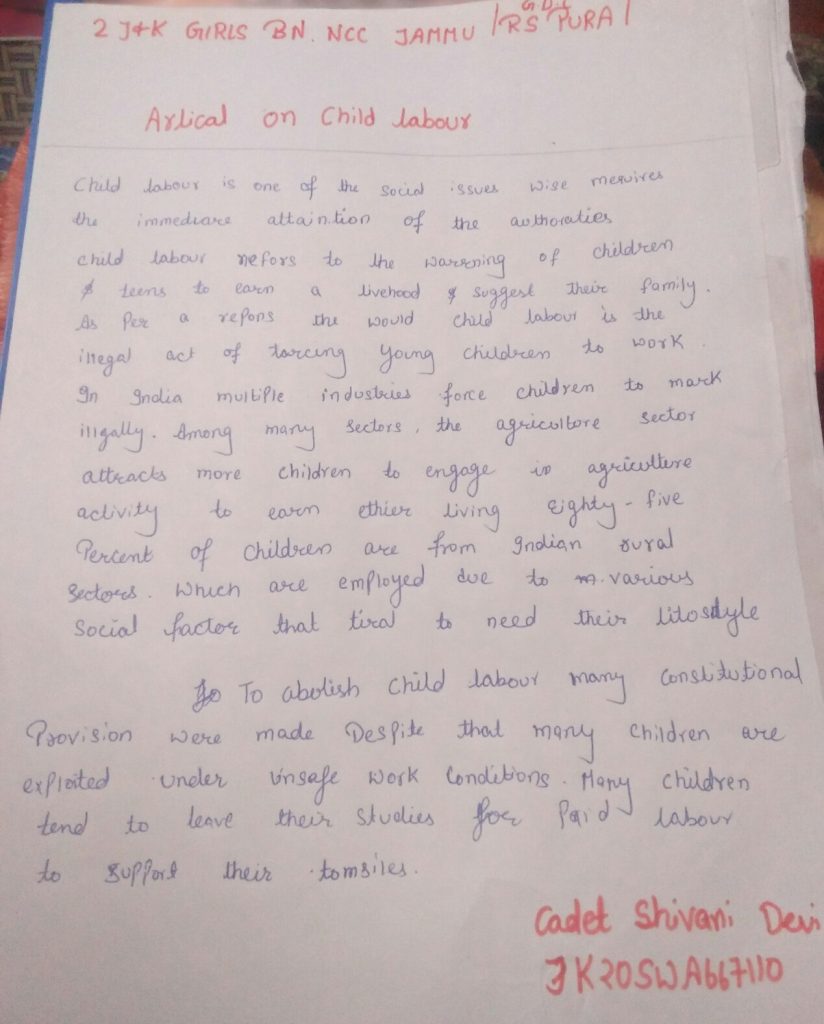 2 J&K GIRLS BN. NCC JAMMU |RS PURA|
GDC
Artical on Child labour
Child labour is one of the social issues wise mequires
the immediare attaintion of the authoraties
child labour refors to the warrning of children
& teens to earn a livehood & suggest their family.
As Per a repons the would child labour is the
illegal act of torcing young children to work.
In India multiple industries force children to mark
illigally. Among many sectors, the agricultore sector
attracts more children to engage in agriculture
activity to earn ethier living Eighty-five
Percent of children are from Indian rural
Sectors. Which are employed due to m. various
Social factor that tiral to need their litostyle
To abolish child labour many Constitutional
Provision were made Despite that many children are
exploited under unsafe work Conditions. Many children
tend to leave their studies for Paid labour
to support their tomsiles.
Cadet Shivani Devi
JK20SWA667110